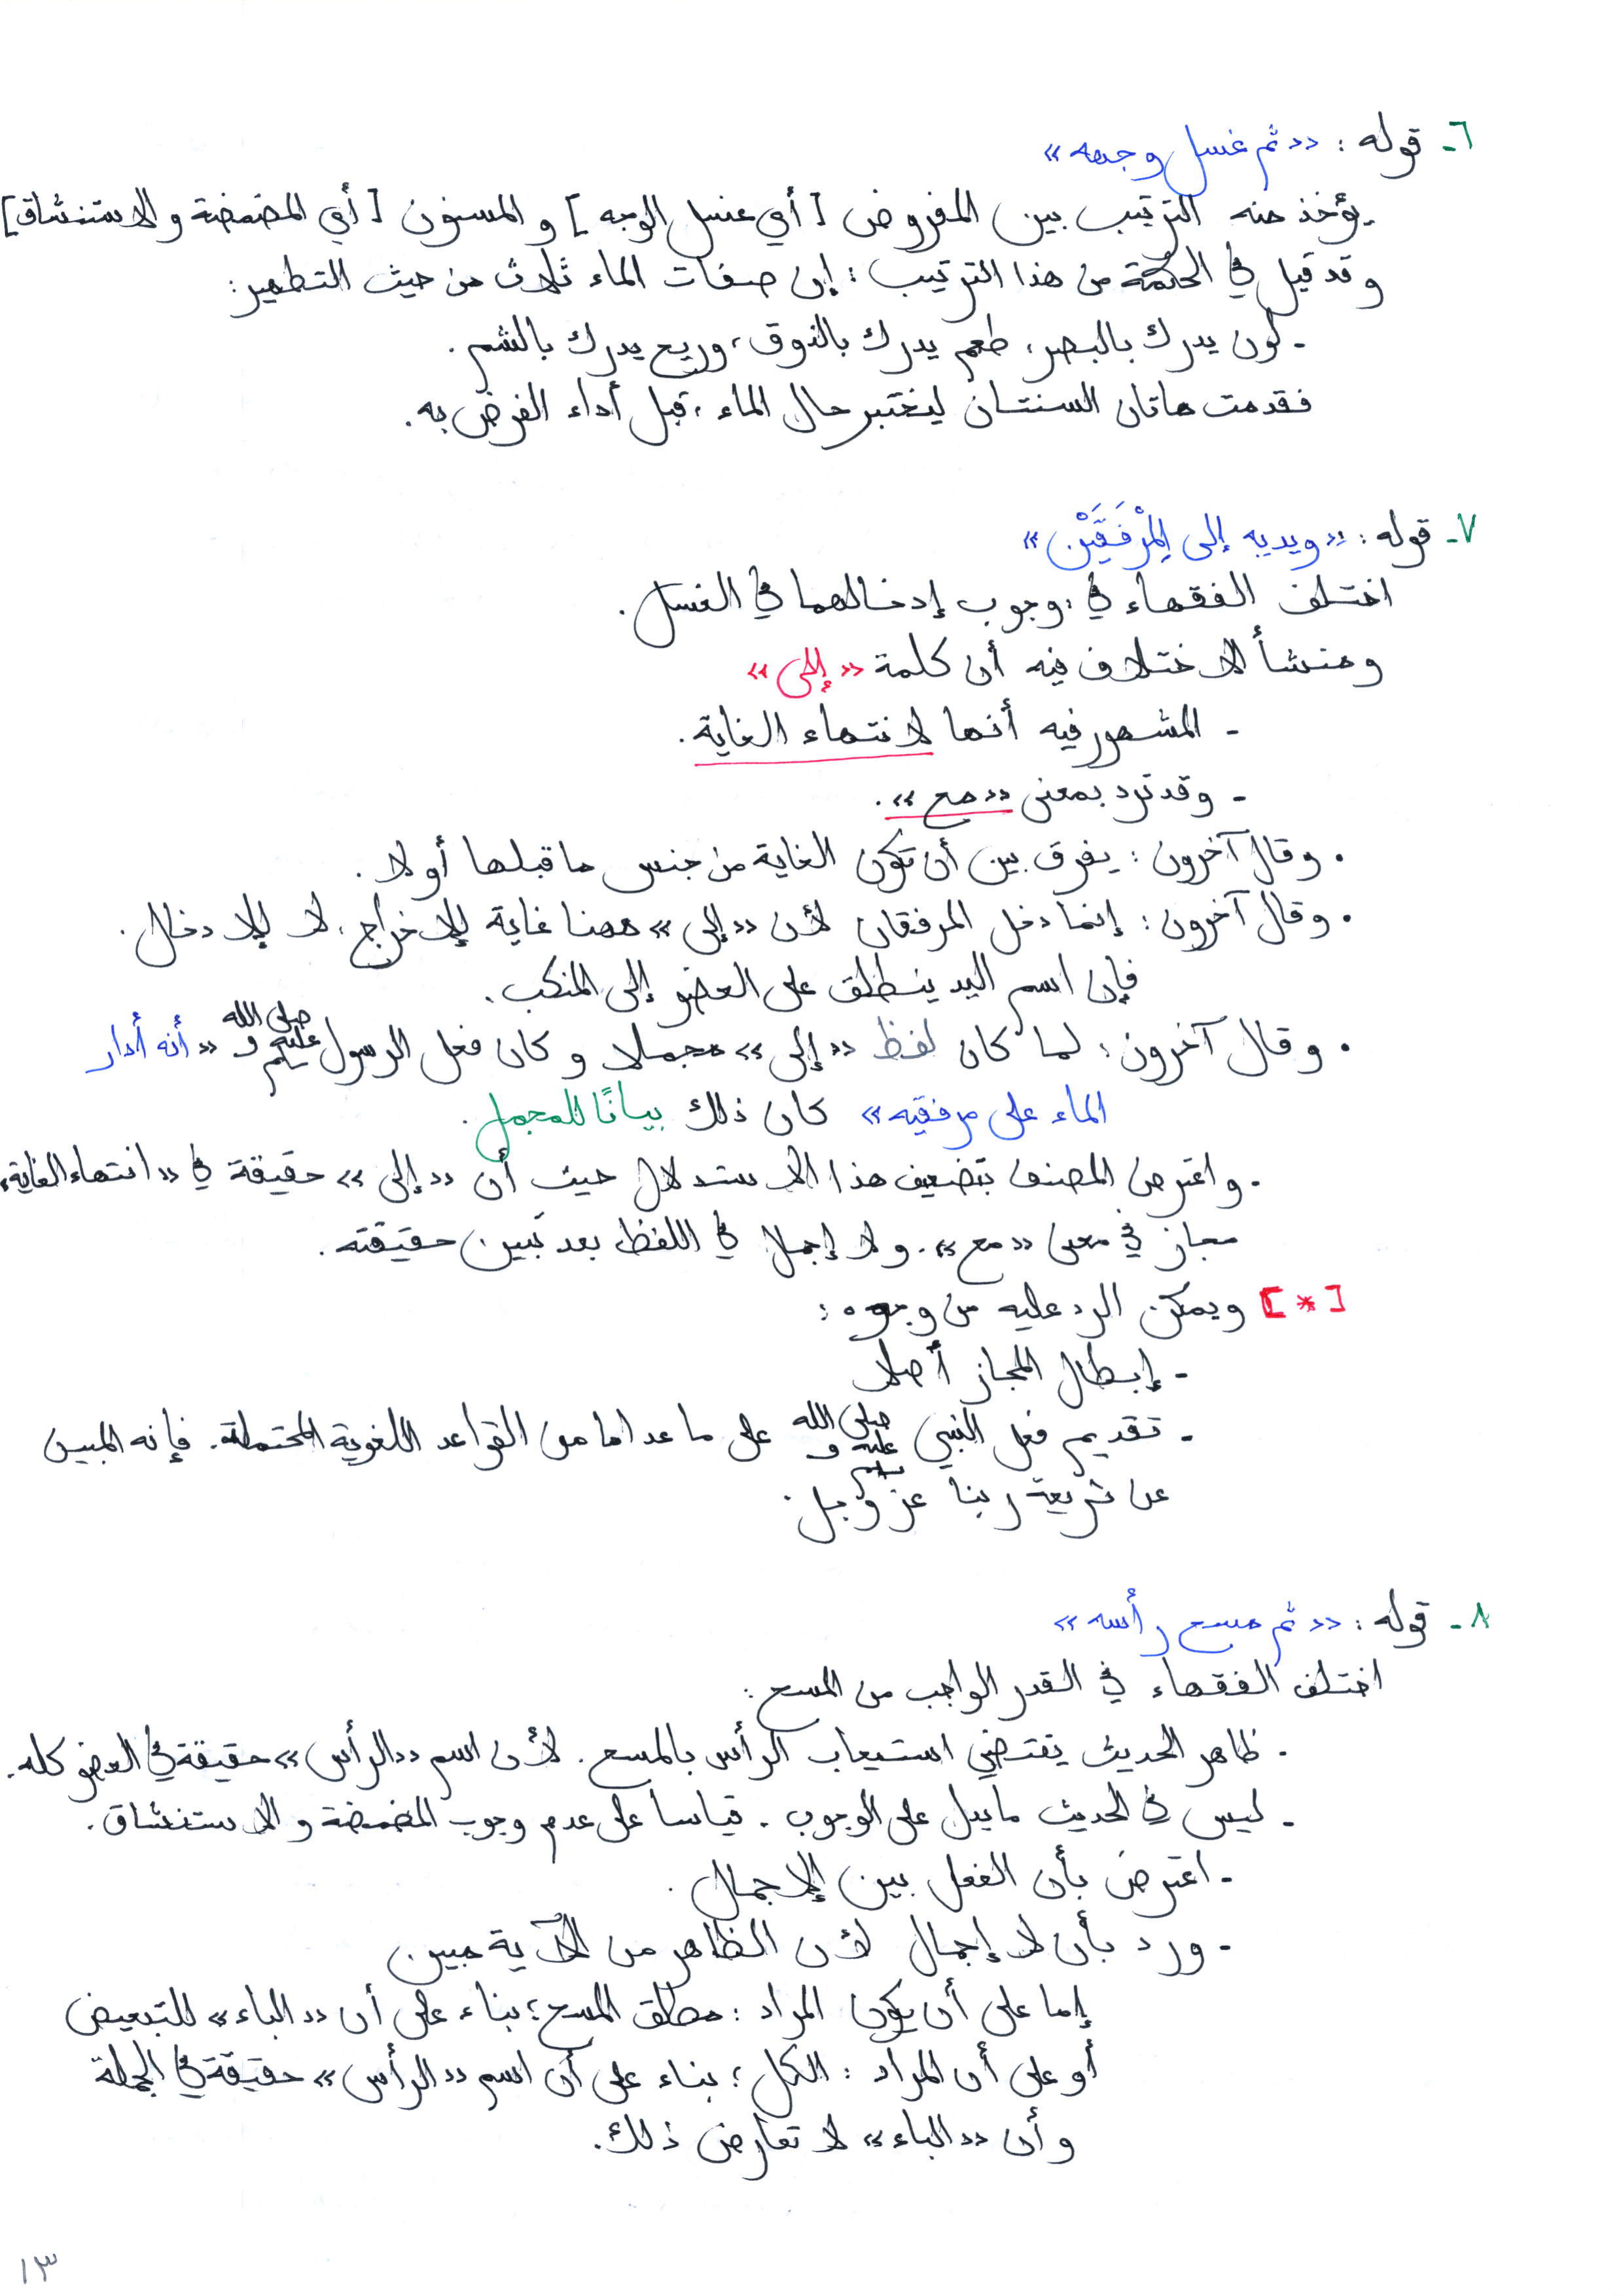 ٦- قوله : «ثم غسل وجهه»
يؤخذ منه الترتيب بين المفروض [أي غسل الوجه] و المسنون [أي المضمضة والاستنشاق]
وقد قيل في الحكمة من هذا الترتيب : إن صفات الماء ثلاث من حيث التطهير:
- لون يدرك بالبصر، طعم يدرك بالذوق، وريح يدرك بالشم .
فقدمت هاتان السنتان ليختبر حال الماء ، قبل أداء الفرض به .
٧- قوله : «ويديه إلى المِرْفَقَيْن»
اختلف الفقهاء في وجوب إدخالهما في الغسل .
ومنشأ الاختلاف فيه أن كلمة «إلى»
- المشهور فيه أنها لانتهاء الغاية .
- وقد ترد بمعنى «مع» .
• وقال آخرون : يفرق بين أن تكون الغاية من جنس ما قبلها أو لا .
• وقال آخرون : إنما دخل المرفقان لأن «إلى» ههنا غاية للإخراج، لا للإدخال .
فإن اسم اليد ينطلق على العضو إلى المنكب .
• وقال آخرون : لما كان لفظ «إلى» مجملا و كان فعل الرسول صلى الله عليه و سلم «أنه أدار
الماء على مرفقيه» كان ذلك بيانًا للمجمل .
- واعترض المصنف بتضعيف هذا الاستدلال حيث أن «إلى» حقيقة في «انتهاء الغاية»
مجاز في معنى «مع» . ولا إجمال في اللفظ بعد تبين حقيقته .
[*] ويمكن الرد عليه من وجوه :
- إبطال المجاز أصلا
- تقديم فعل النبي صلى الله عليه و سلم على ما عداما من القواعد اللغوية المحتملة . فإنه المبين
عن شريعة ربنا عز وجل .
٨- قوله : «ثم مسح رأسه»
اختلف الفقهاء في القدر الواجب من المسح :
• ظاهر الحديث يقتضي استيعاب الرأس بالمسح . لأن اسم «الرأس» حقيقة في العضو كله .
- ليس في الحديث ما يدل على الوجوب . قياسا على عدم وجوب المضمضة و الاستنشاق .
- اعترض بأن الفعل بين الإجمال .
- ورد بأن لا إجمال لأن الظاهر من الآية مبين
إما على أن يكون المراد : مطلق المسح ؛ بناء على أن «الباء» للتبعيض
أو على أن المراد : الكل ؛ بناء على أن اسم «الرأس» حقيقة في الجملة
وأن «الباء» لا تعارض ذلك .
١٣